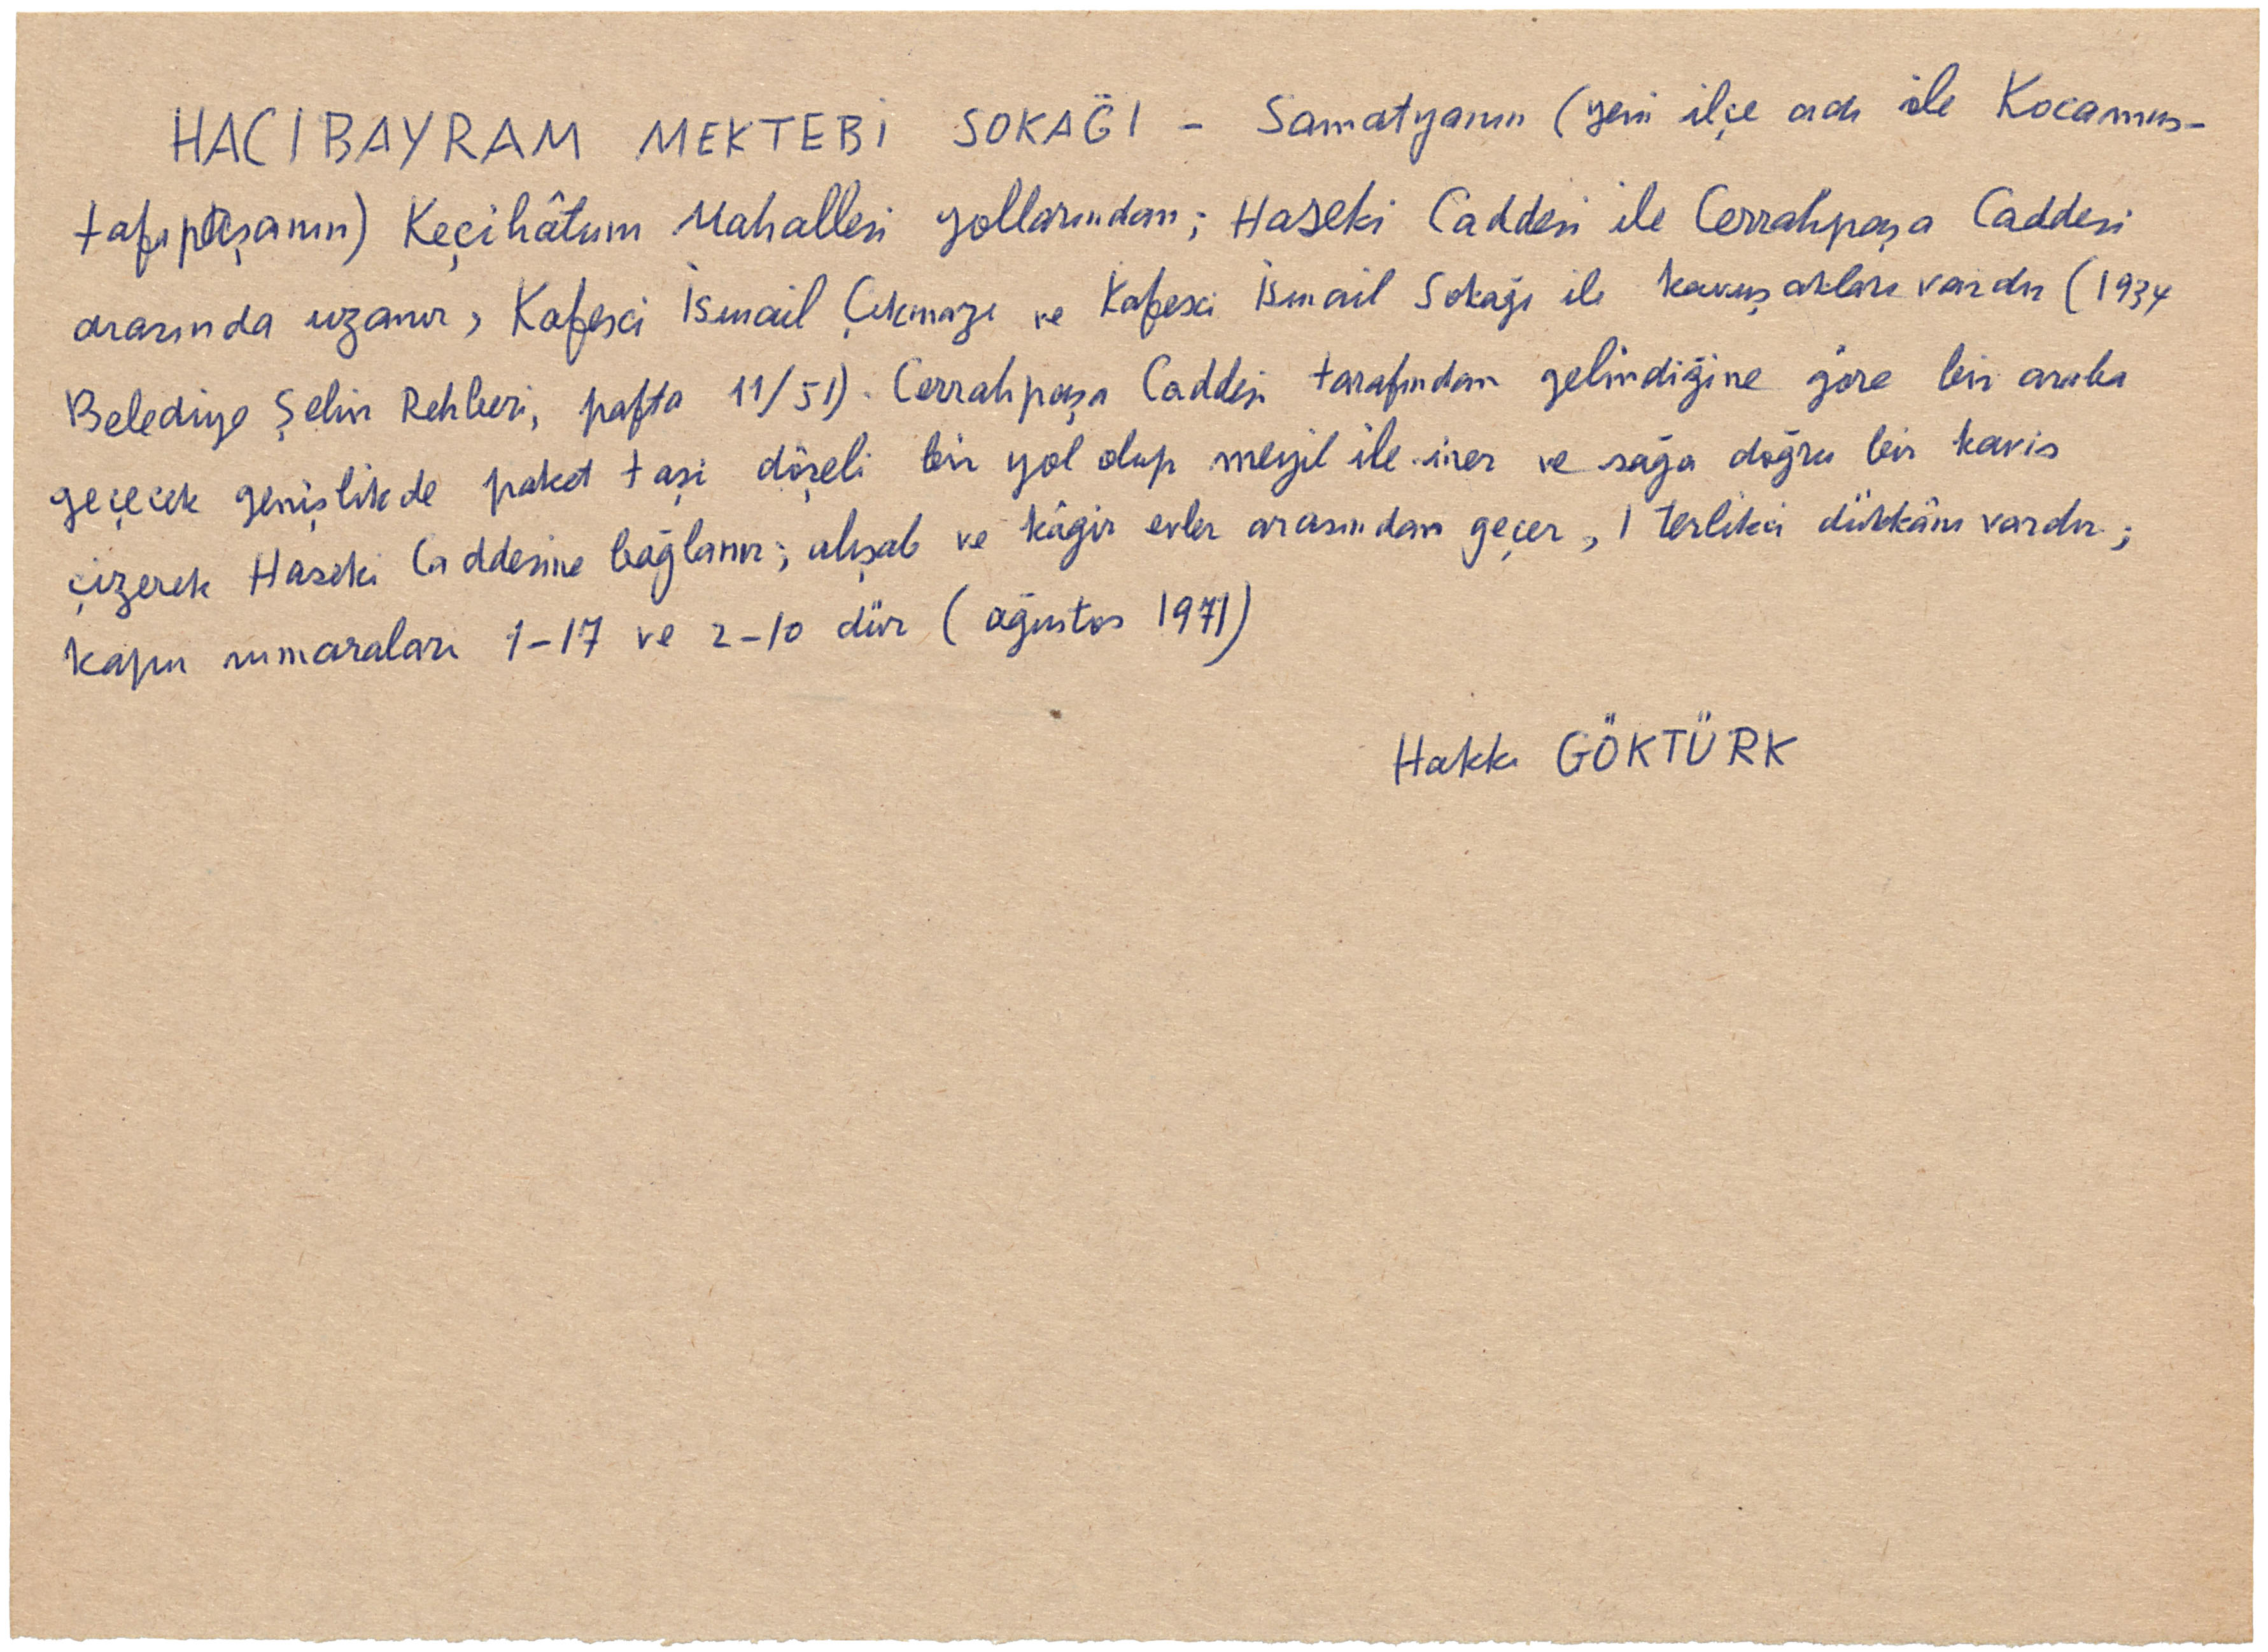 HACIBAYRAM MEKTEBİ SOKAĞI - Samatyanın (yeni ilçe adı ile Kocamus-
tafapaşanın) Keçihâtum Mahallesi yollarından; Haseki Caddesi ile Cerrahpaşa Caddesi
arasında uzanır, Kafesci İsmail Çıkmazı ve Kafesci İsmail Sokağı ile kavuşakları vardır (1934
Belediye Şehir Rehberi, pafta 11/51). Cerrahpaşa Caddesi tarafından gelindiğine göre bir araba
geçecek genişlikde paket taşı döşeli bir yol olup meyil ile iner ve sağa doğru bir kavis
çizerek Haseki Caddesine bağlanır; ahşab ve kâgir evler arasından geçer, 1 terlikci dükkânı vardır;
kapu numaraları 1-17 ve 2-10 dür (ağustos 1971)
Hakkı GÖKTÜRK